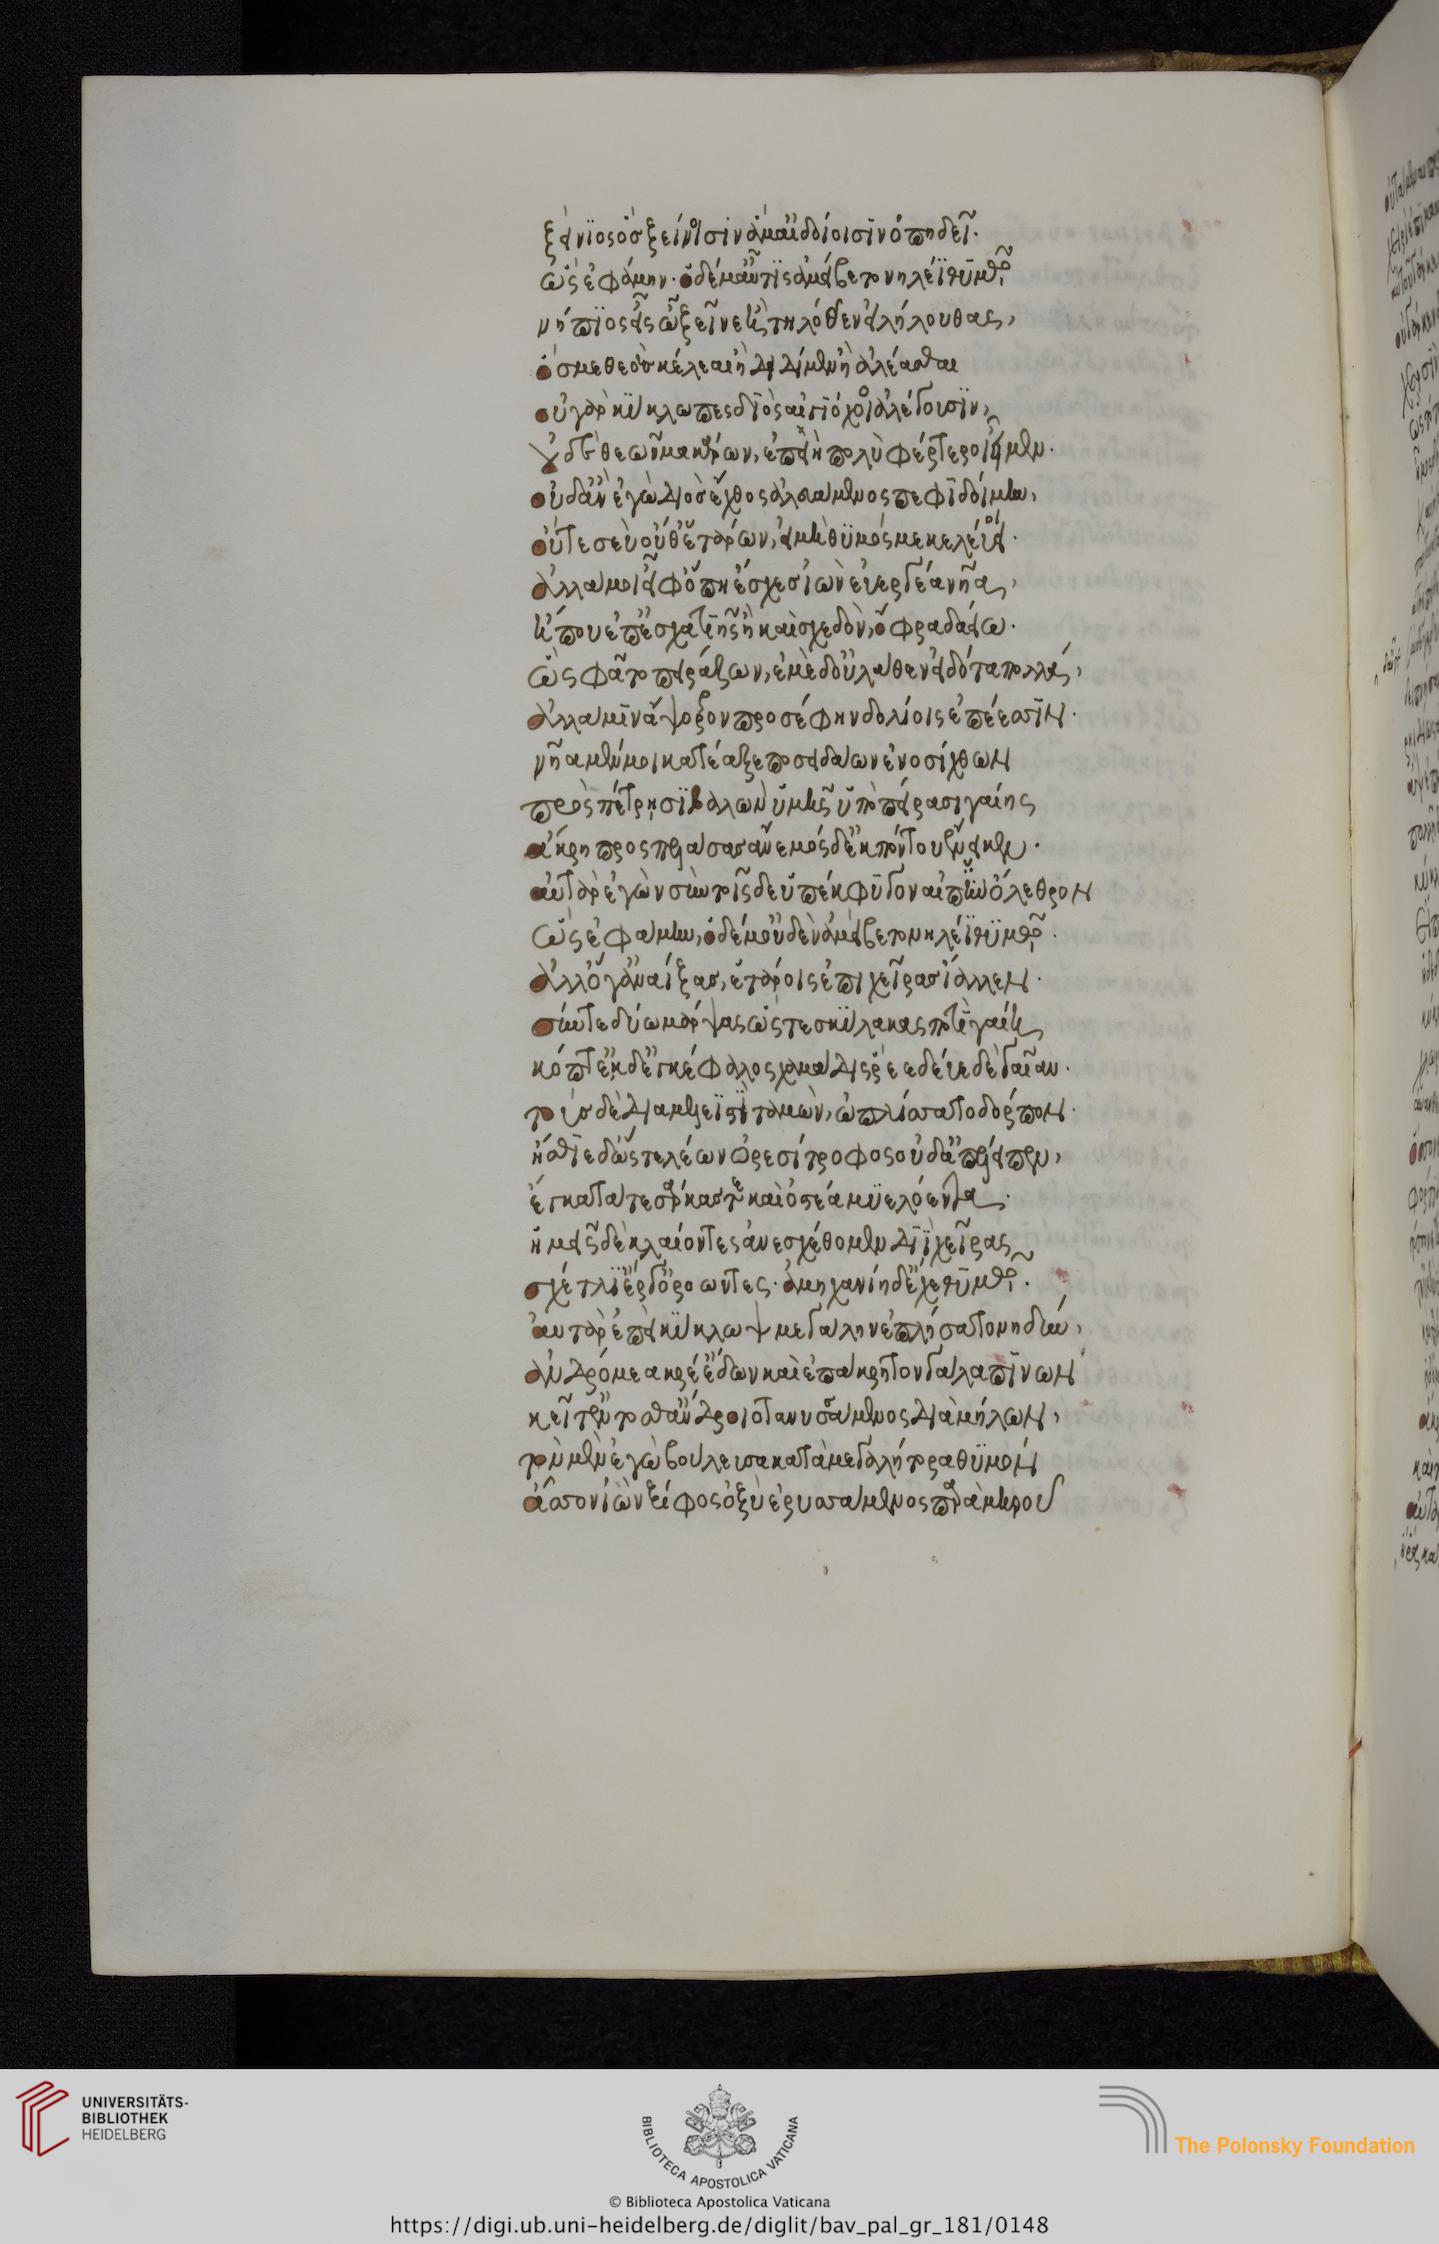 ξείνϊος ὃς ξείνοισιν ἅμ αἰδοίοισϊν ὀπηδεῖ.
ὣς ἐφάμην. ὁ δέ μ αὖτϊς ἀμείβετο νηλέϊ θϋμῷ,
νήπϊος εἷς ὦ ξεῖν ἢ τηλόθεν εἰλήλουθας,
ὅς με θεοὺς κέλεαι ἢ δειδίμεν ἢ ἀλέασθαι
οὐ γὰρ κΰκλωπες δϊὸς αἰγϊόχοι ἀλέγουσϊν,
οὐδὲ θεῶν μακάρων, ἐπειὴ πολὺ φέρτεροί εἰμεν.
οὐδ ἂν ἐγὼ διὸς ἔχθος ἀλευάμενος πεφϊδοίμην,
οὔτε σεῦ οὔθ ἑτάρων, εἰ μὴ θϋμός με κελεύοι.
ἀλλά μοι εἴφ ὅπη ἔσχες ἰὼν εὐεργέα νῆα,
ἤ που ἐπ ἐσχατϊῆς ἢ καὶ σχεδὸν, ὄφρα δαείω.
ὣς φάτο πειράζων, ἐμὲ δ οὐ λάθεν εἰδότα πολλά,
ἀλλά μϊν ἄψορρον προσέφην δολίοις ἐπέεσσϊν.
νῆα μέν μοι κατέαξε ποσειδάων ἐνοσίχθων
πρὸς πέτρῃσϊ βαλὼν ὑμῆς ὑπὸ πείρασι γαίης
ἄκρῃ προσπελάσας ἄνεμος δ ἐκ πόντου ἔνεικεν.
αὐτὰρ ἐγὼ σὺν τοῖσδε ὑπέκφϋγον αἰπὺν ὄλεθρον
ὣς ἐφάμην, ὁ δέ μ οὐδὲν ἀμείβετο νηλέϊ θϋμῷ.
ἀλλ ὅγ ἀναΐξας, ἑτάροις ἐπι χεῖρας ἴαλλεν.
σὺν τε δύω μάρψας ὥς τε σκΰλακας ποτὶ γαίῃ
κόπτ ἐκ δ ἐγκέφαλος χαμάδις ῥέε δεῦε δὲ γαῖαν.
τοὺς δὲ διαμελεϊστὶ ταμὼν, ὡπλίσσατο δόρπον.
ἤσθϊε δ ὥς τε λέων ὀρεσίτροφος οὐδ ἀπέλειπεν,
ἔγκατά τε σάρκας τε καὶ ὀστέα μϋελόεντα.
ἡμεῖς δὲ κλαίοντες ἀνεσχέθομεν διῒ χεῖρας
σχέτλϊ ἔργ ὁρόωντες. ἀμηχανίη δ ἔχε θϋμόν.
αὐτὰρ ἐπεὶ κΰκλωψ μεγάλην ἐπλήσατο νηδύν,
ἀνδρόμεα κρέ ἔδων καὶ ἐπ ἄκρητον γάλα πϊνων
κεῖτ ἔντοσθ ἄντροιο τανυσσάμενος διὰ μήλων,
τὸν μὲν ἐγὼ βούλευσα κατὰ μεγαλήτορα θϋμὸν
ἆσσον ἰὼν ξίφος ὀξὺ ἐρυσσάμενος παρὰ μηροῦ
UNIVERSITÄTS-
BIBLIOTHEK
HEIDELBERG
BIBLIOTECA APOSTOLICA VATICANA
The Polonsky Foundation
© Biblioteca Apostolica Vaticana
https://digi.ub.uni-heidelberg.de/diglit/bav_pal_gr_181/0148